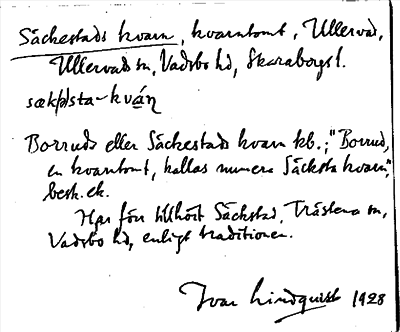 Säckestads kvarn, kvarntomt, Ullervad,
Ullervads sn, Vadsbo hd, Skaraborgs l.
Borruds eller Säckestads kvarn kb.; "Borrud,
en kvarntomt, kallas numera Säcksta kvarn",
besk. ek.
Har förr tillhört Säckstad, Trästena sn,
Vadsbo hd, enligt traditionen.
Ivar Lindquist 1928